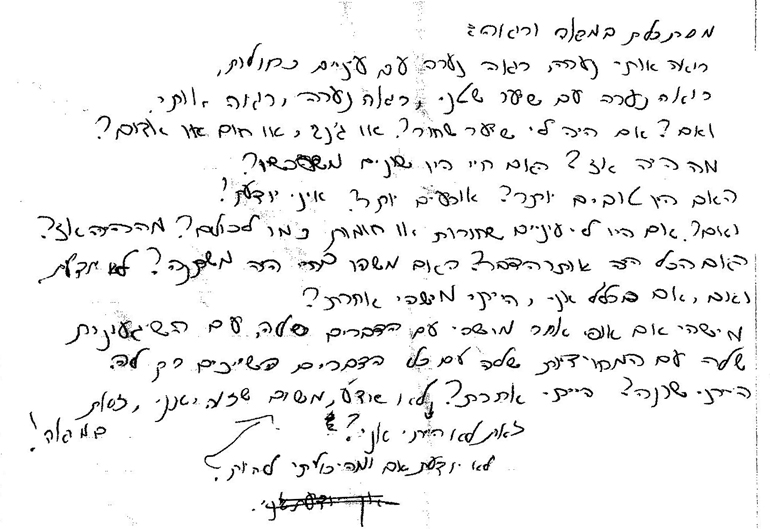 מסתכלת במראה ורואה:
רואה אותי נערה, רואה נערה עם עיניים כחולות,
רואה נערה עם שיער שטני, רואה נערה, רואה אותי.
ואם? אם היה לי שיער שחור? או ג'ינג'י, או חום או אדום?
מה היה אז? האם חיי היו שונים משעכשיו?
האם היו טובים יותר? או רעים יותר? איני יודעת!
ואם? אם היו לי עיניים שחורות או חומות כמו לכולם? מה היה אז?
האם הכל היה אותו הדבר? האם משהו בחיי היה משתנה? לא יודעת
ואם, אם בכלל אני, הייתי מישהי אחרת?
מישהי אם אופי אחר מישהי עם הדברים שלה, עם השיגעונות
שלה עם המחויבות שלה עם כל הדברים השייכים רק לה.
הייתי שונה? הייתי אחרת? לא אדע, משום שזה אני, זאת
במראה!
זאת לא הייתי אני?
לא יודעת אם ומה יכולתי להיות?